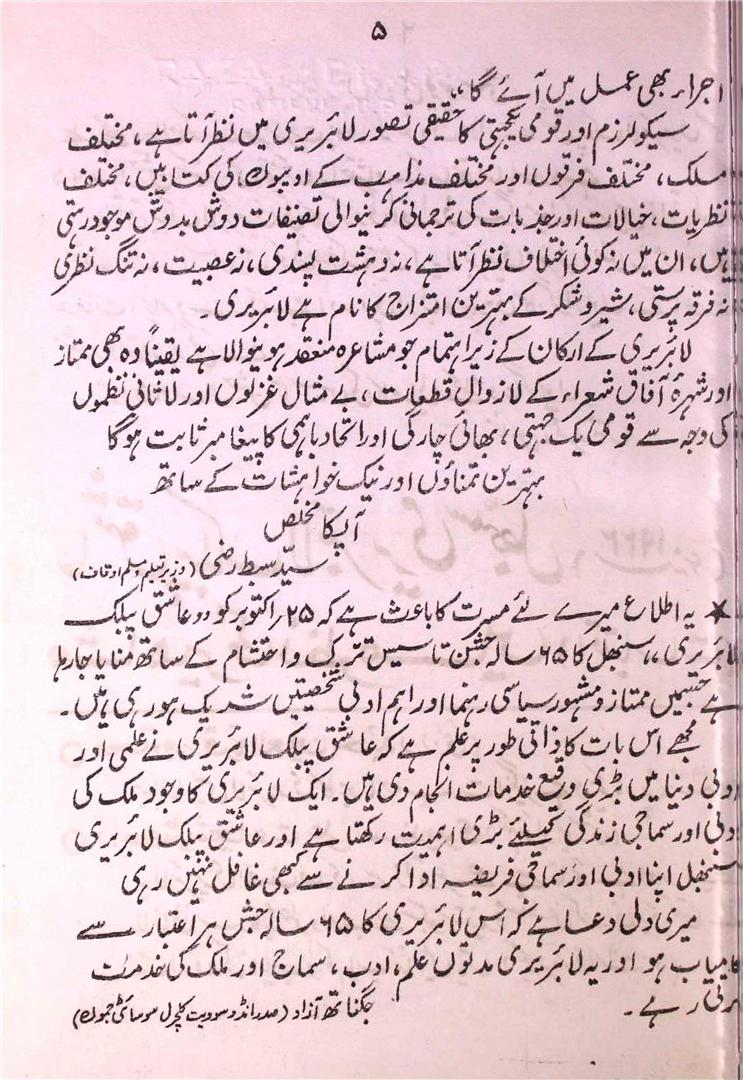 ۵
اجراء بھی عمل میں آئے گا“
سیکولرزم اور قومی یکجہتی کا حقیقی تصور لائبریری میں نظر آتا ہے، مختلف
مسلک، مختلف فرقوں اور مختلف مذاہب کے ادیبوں، کی کتابیں، مختلف
نظریات، خیالات اور جذبات کی ترجمانی کرنیوالی تصنیفات دوش بدوش موجود رہتی
ہیں، ان میں نہ کوئی اختلاف نظر آتا ہے، نہ دہشت پسندی، نہ عصبیت، نہ تنگ نظری
نہ فرقہ پرستی، شیر و شکر کے بہترین امتزاج کا نام ہے لائبریری۔
لائبریری کے ارکان کے زیر اہتمام جو مشاعرہ منعقد ہونیوالا ہے یقیناً وہ بھی ممتاز
اور شہرۂ آفاق شعراء کے لازوال قطعات، بے مثال غزلوں اور لاثانی نظموں
کی وجہ سے قومی یک جہتی، بھائی چارگی اور اتحاد باہمی کا پیغامبر ثابت ہوگا
بہترین تمناؤں اور نیک خواہشات کے ساتھ
آپکا مخلص
سیّد سبط رضی (وزیر تعلیم و مسلم اوقاف)
★ یہ اطلاع میرے لئے مسرت کا باعث ہے کہ ۲۵؍اکتوبر کو ”عاشق پبلک
لائبریری“ سنبھل کا ۶۵ سالہ جشن تاسیس تزک و احتشام کے ساتھ منایا جا رہا
ہے جسمیں ممتاز و مشہور سیاسی رہنما اور اہم ادبی شخصیتیں شریک ہو رہی ہیں۔
مجھے اس بات کا ذاتی طور پر علم ہے کہ عاشق پبلک لائبریری نے علمی اور
ادبی دنیا میں بڑی وقیع خدمات انجام دی ہیں۔ ایک لائبریری کا وجود ملک کی
ادبی اور سماجی زندگی کیلئے بڑی اہمیت رکھتا ہے اور عاشق پبلک لائبریری
سنبھل اپنا ادبی اور سماجی فریضہ ادا کرنے سے کبھی غافل نہیں رہی
میری دلی دعا ہے کہ اس لائبریری کا ۶۵ سالہ جشن ہر اعتبار سے
کامیاب ہو اور یہ لائبریری مدتوں علم، ادب، سماج اور ملک کی خدمت
کرتی رہے۔
جگناتھ آزاد (صدر انڈو سوویت کلچرل سوسائٹی جموں)